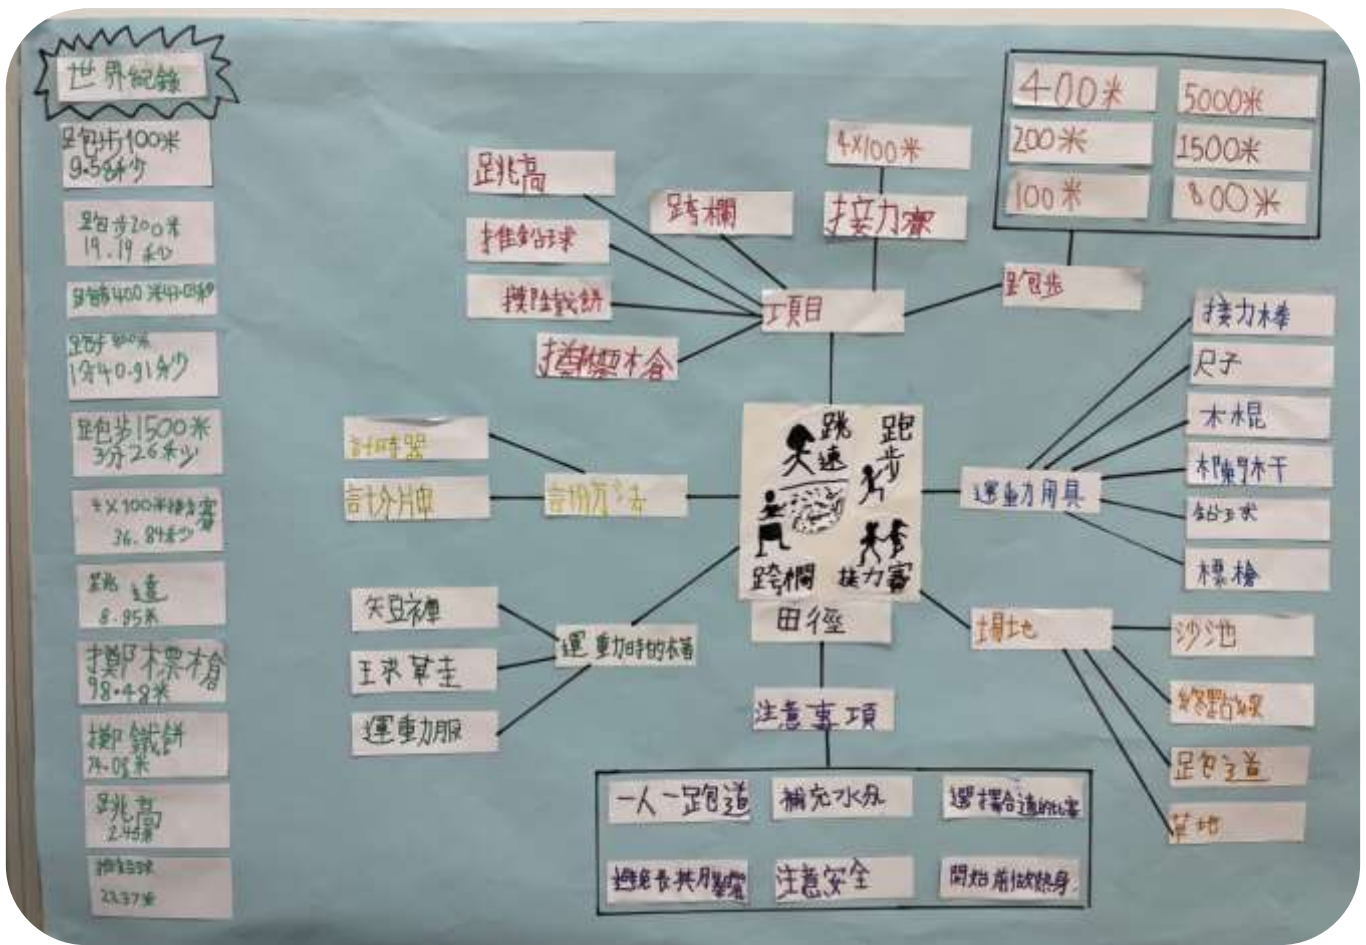 世界紀錄
跑步100米
9.58秒
跑步200米
19.19秒
跑步400米43.03秒
跑步800米
1分40.91秒
跑步1500米
3分26秒
4×100米接力賽
36.84秒
跳遠
8.95米
擲標槍
98.48米
擲鐵餅
74.08米
跳高
2.45米
推鉛球
23.37米
跳高
推鉛球
擲鐵餅
擲標槍
跨欄
4×100米
接力賽
項目
400米
5000米
200米
1500米
100米
800米
跑步
計時器
計分牌
計分方法
跳遠
跑步
跨欄
接力賽
田徑
運動用具
接力棒
尺子
木棍
鉛球
標槍
短褲
運動服
場地
沙池
跑道
草地
注意事項
一人一跑道
補充水分
選擇合適的比賽
注意安全
開始前做熱身